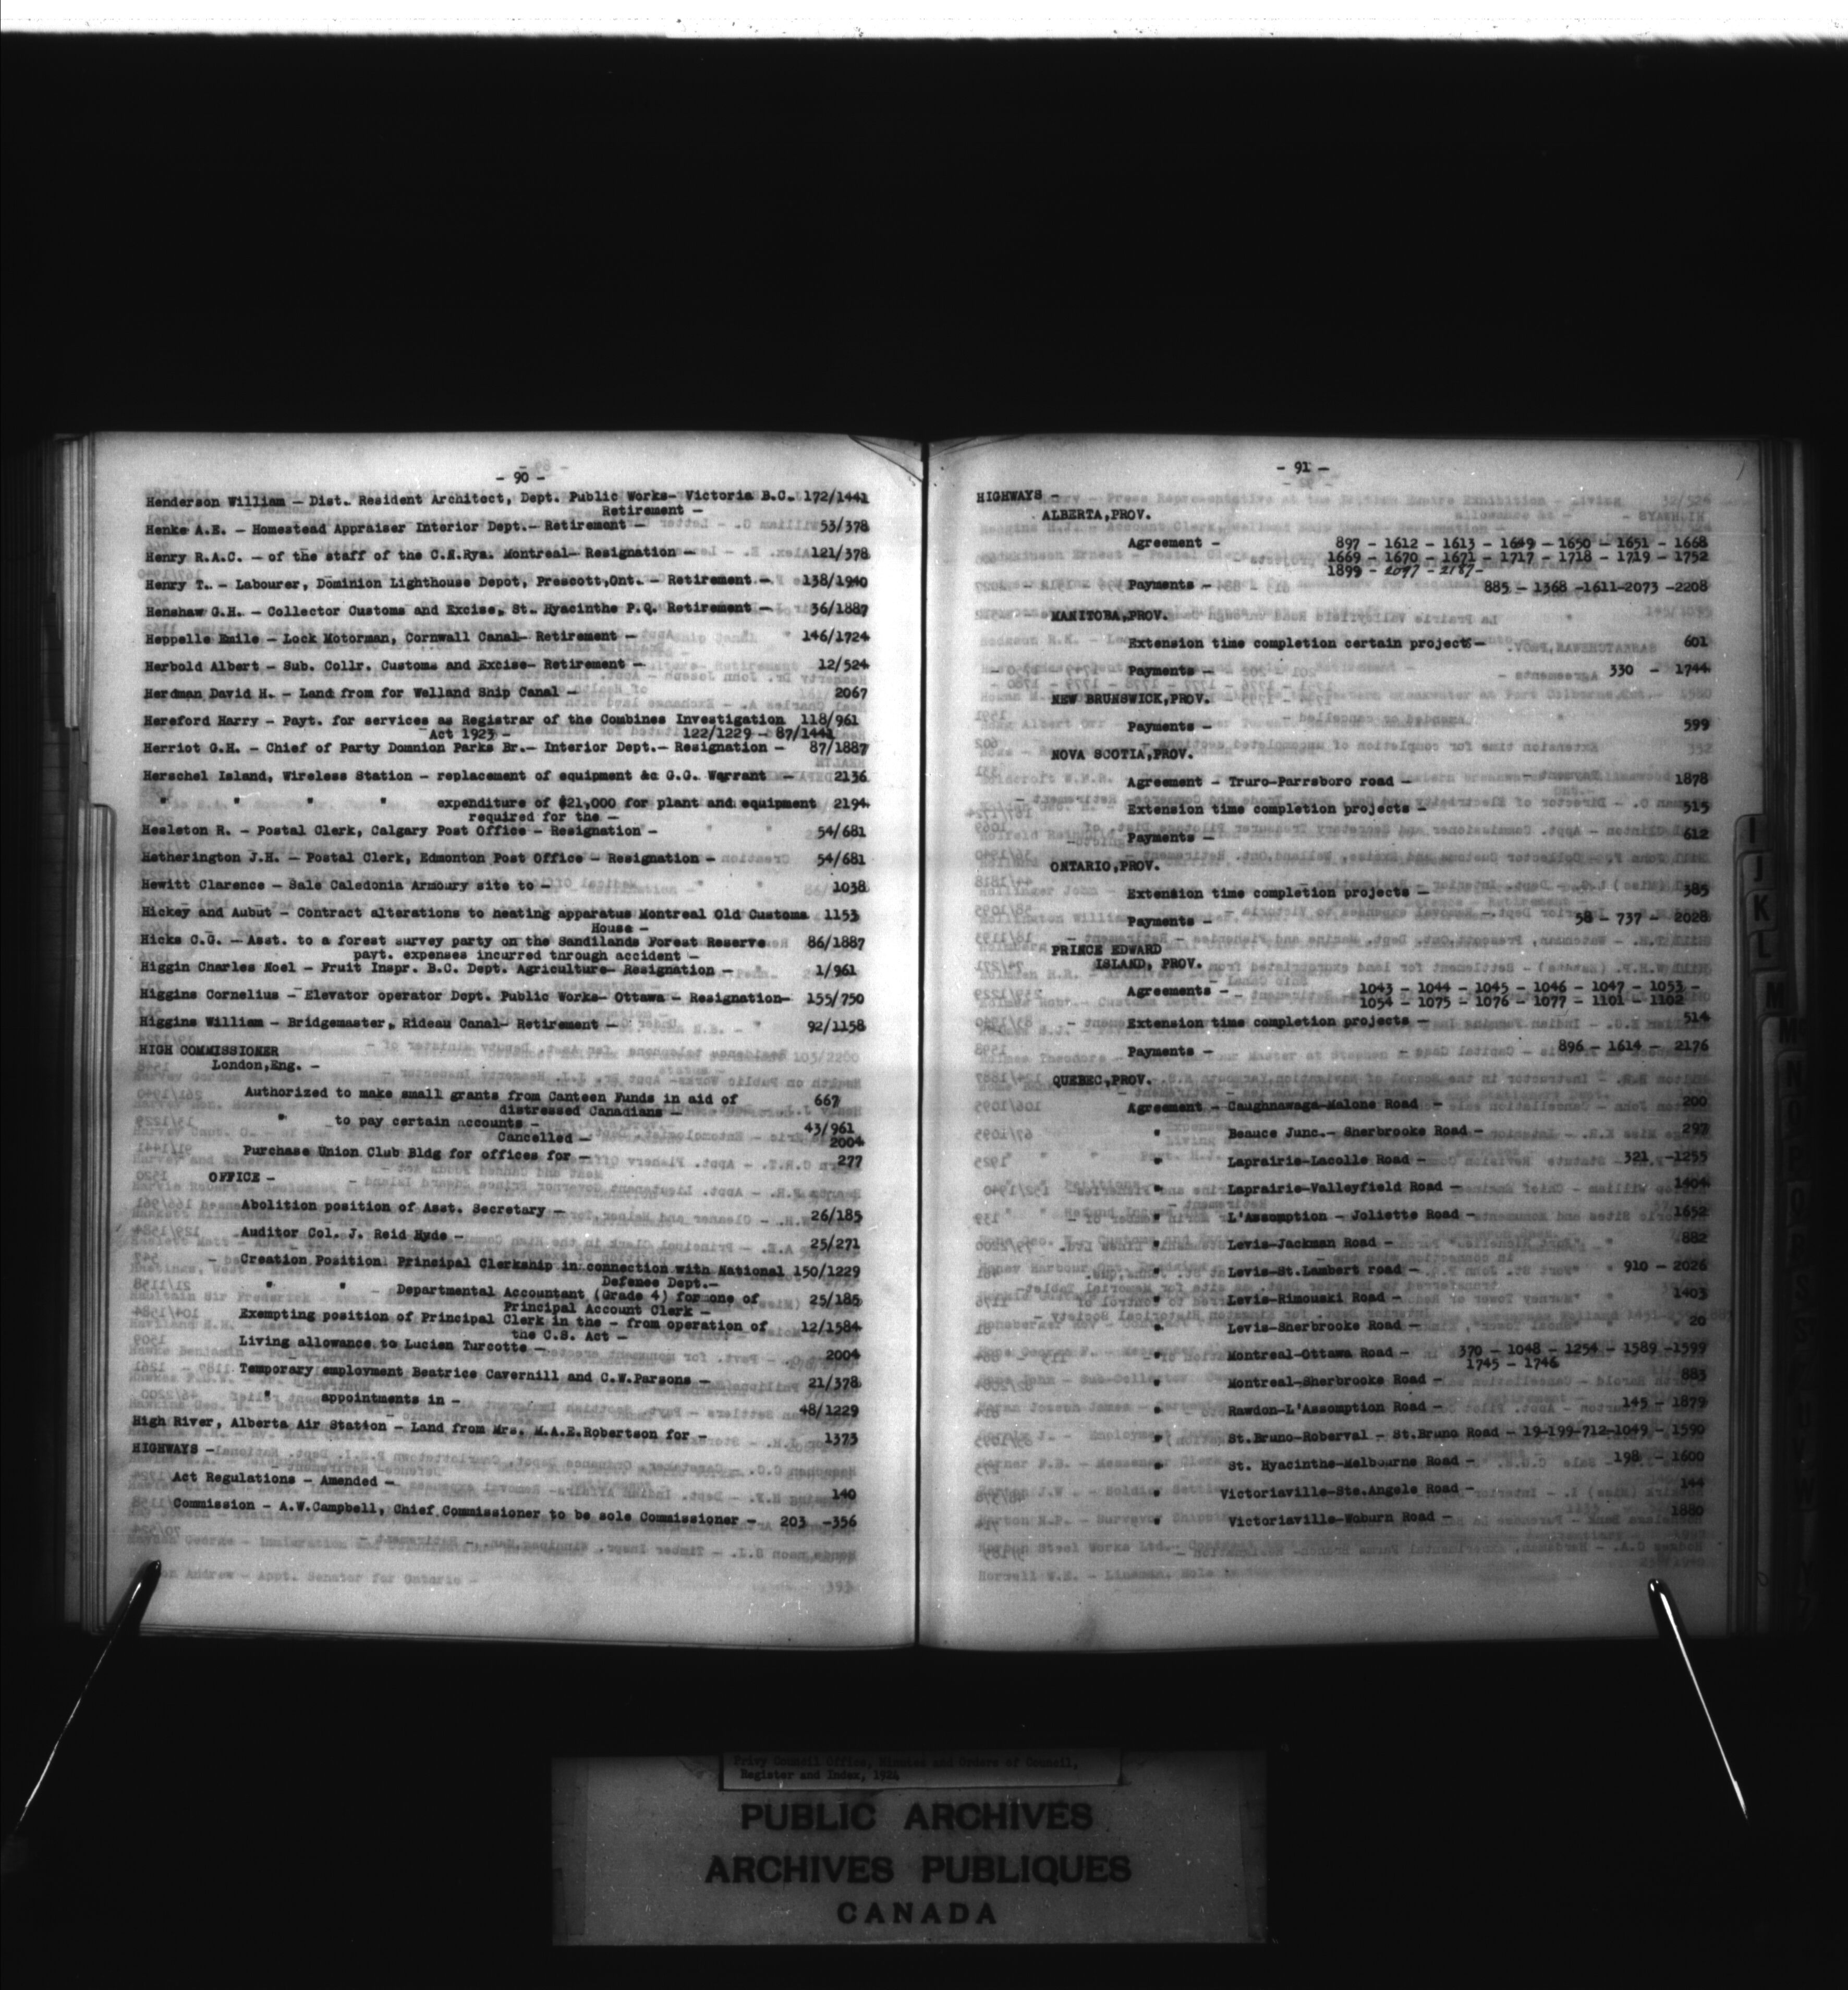 - 90 -
Henderson William - Dist. Resident Architect, Dept. Public Works- Victoria B.C. 172/1441
Retirement -
Henke A.E. - Homestead Appraiser Interior Dept.- Retirement - 53/378
Henry R.A.C. - of the staff of the C.N.Rys. Montreal- Resignation - 121/378
Henry T. - Labourer, Dominion Lighthouse Depot, Prescott,Ont. - Retirement - 138/1940
Henshaw G.H. - Collector Customs and Excise, St. Hyacinthe P.Q. Retirement - 36/1887
Heppelle Emile - Lock Motorman, Cornwall Canal- Retirement - 146/1724
Herbold Albert - Sub. Collr. Customs and Excise- Retirement - 12/524
Herdman David H. - Land from for Welland Ship Canal - 2067
Hereford Harry - Payt. for services as Registrar of the Combines Investigation 118/961
Act 1923 - 122/1229 - 87/1441
Herriot G.H. - Chief of Party Domnion Parks Br.- Interior Dept.- Resignation - 87/1887
Herschel Island, Wireless Station - replacement of equipment &c G.G. Warrant - 2136
" " " " expenditure of $21,000 for plant and equipment 2194
required for the -
Hesleton R. - Postal Clerk, Calgary Post Office - Resignation - 54/681
Hetherington J.H. - Postal Clerk, Edmonton Post Office - Resignation - 54/681
Hewitt Clarence - Sale Caledonia Armoury site to - 1038
Hickey and Aubut - Contract alterations to heating apparatus Montreal Old Customs 1153
House -
Hicks C.G. - Asst. to a forest survey party on the Sandilands Forest Reserve 86/1887
payt. expenses incurred through accident -
Higgin Charles Noel - Fruit Inspr. B.C. Dept. Agriculture- Resignation - 1/961
Higgins Cornelius - Elevator operator Dept. Public Works- Ottawa - Resignation- 155/750
Higgins William - Bridgemaster, Rideau Canal- Retirement - 92/1158
HIGH COMMISSIONER
London,Eng. -
Authorized to make small grants from Canteen Funds in aid of 667
distressed Canadians -
" to pay certain accounts - 43/961
Cancelled - 2004
Purchase Union Club Bldg for offices for - 277
OFFICE -
Abolition position of Asst. Secretary - 26/185
Auditor Col. J. Reid Hyde - 25/271
- Creation Position Principal Clerkship in connection with National 150/1229
Defense Dept.-
" " - Departmental Accountant (Grade 4) for one of 25/185
Principal Account Clerk -
Exempting position of Principal Clerk in the - from operation of 12/1584
the C.S. Act -
Living allowance to Lucien Turcotte - 2004
Temporary employment Beatrice Cavernill and C.W.Parsons - 21/378
" appointments in - 48/1229
High River, Alberta Air Station - Land from Mrs. M.A.E.Robertson for - 1373
HIGHWAYS -
Act Regulations - Amended - 140
Commission - A.W.Campbell, Chief Commissioner to be sole Commissioner - 203 -356
- 91 -
HIGHWAYS -
ALBERTA,PROV.
Agreement - 897 - 1612 - 1613 - 1649 - 1650 - 1651 - 1668
1669 - 1670 - 1671 - 1717 - 1718 - 1719 - 1752
1899 - 2097 - 2187-
Payments - 885 - 1368 -1611-2073 -2208
MANITOBA,PROV.
Extension time completion certain projects - 601
Payments - 330 - 1744
NEW BRUNSWICK,PROV.
Payments - 599
NOVA SCOTIA,PROV.
Agreement - Truro-Parrsboro road - 1878
Extension time completion projects - 515
Payments - 612
ONTARIO,PROV.
Extension time completion projects - 385
Payments - 58 - 737 - 2028
PRINCE EDWARD
ISLAND, PROV.
Agreements - 1043 - 1044 - 1045 - 1046 - 1047 - 1053 -
1054 - 1075 - 1076 - 1077 - 1101 - 1102
Extension time completion projects - 514
Payments - 896 - 1614 - 2176
QUEBEC,PROV.
Agreement - Caughnawaga-Malone Road - 200
" Beauce Junc.- Sherbrooke Road - 297
" Laprairie-Lacolle Road - 321 -1255
" Laprairie-Valleyfield Road - 1404
" L'Assomption - Joliette Road - 1652
" Levis-Jackman Road - 882
" Levis-St.Lambert road - 910 - 2026
" Levis-Rimouski Road - 1403
" Levis-Sherbrooke Road - 20
" Montreal-Ottawa Road - 370 - 1048 - 1254 - 1589 -1599
1745 - 1746
" Montreal-Sherbrooke Road - 883
" Rawdon-L'Assomption Road - 145 - 1879
" St.Bruno-Roberval - St.Bruno Road - 19-199-712-1049 - 1590
" St. Hyacinthe-Melbourne Road - 198 - 1600
" Victoriaville-Ste.Angele Road - 144
" Victoriaville-Woburn Road - 1880
I
J
K
L
M
Privy Council Office, Minutes and Orders of Council,
Register and Index, 1924
PUBLIC ARCHIVES
ARCHIVES PUBLIQUES
CANADA